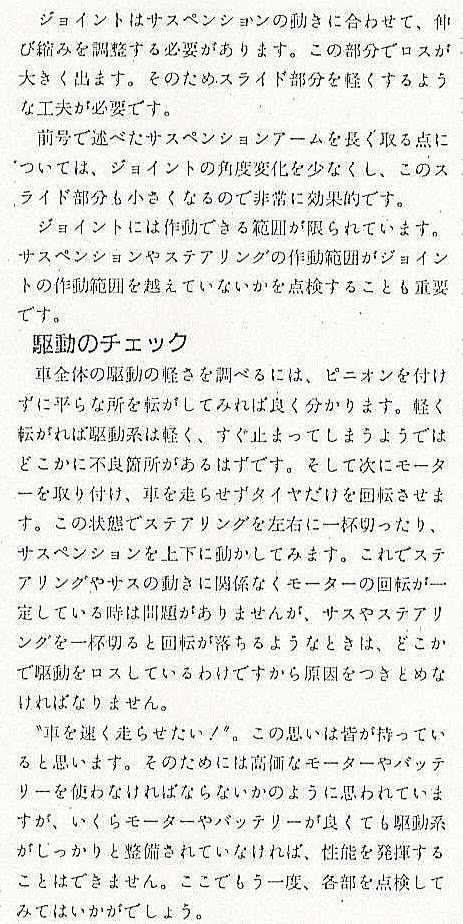 ジョイントはサスペンションの動きに合わせて、伸
び縮みを調整する必要があります。この部分でロスが
大きく出ます。そのためスライド部分を軽くするよう
な工夫が必要です。
前号で述べたサスペンションアームを長く取る点に
ついては、ジョイントの角度変化を少なくし、このス
ライド部分も小さくなるので非常に効果的です。
ジョイントには作動できる範囲が限られています。
サスペンションやステアリングの作動範囲がジョイン
トの作動範囲を越えていないかを点検することも重要
です。
駆動のチェック
車全体の駆動の軽さを調べるには、ピニオンを付け
ずに平らな所を転がしてみれば良く分かります。軽く
転がれば駆動系は軽く、すぐ止まってしまうようでは
どこかに不良箇所があるはずです。そして次にモータ
ーを取り付け、車を走らせずタイヤだけを回転させま
す。この状態でステアリングを左右に一杯切ったり、
サスペンションを上下に動かしてみます。これでステ
アリングやサスの動きに関係なくモーターの回転が一
定している時は問題がありませんが、サスやステアリ
ングを一杯切ると回転が落ちるようなときは、どこか
で駆動をロスしているわけですから原因をつきとめな
ければなりません。
〝車を速く走らせたい!〞。この思いは皆が持ってい
ると思います。そのためには高価なモーターやバッテ
リーを使わなければならないかのように思われていま
すが、いくらモーターやバッテリーが良くても駆動系
がしっかりと整備されていなければ、性能を発揮する
ことはできません。ここでもう一度、各部を点検して
みてはいかがでしょう。